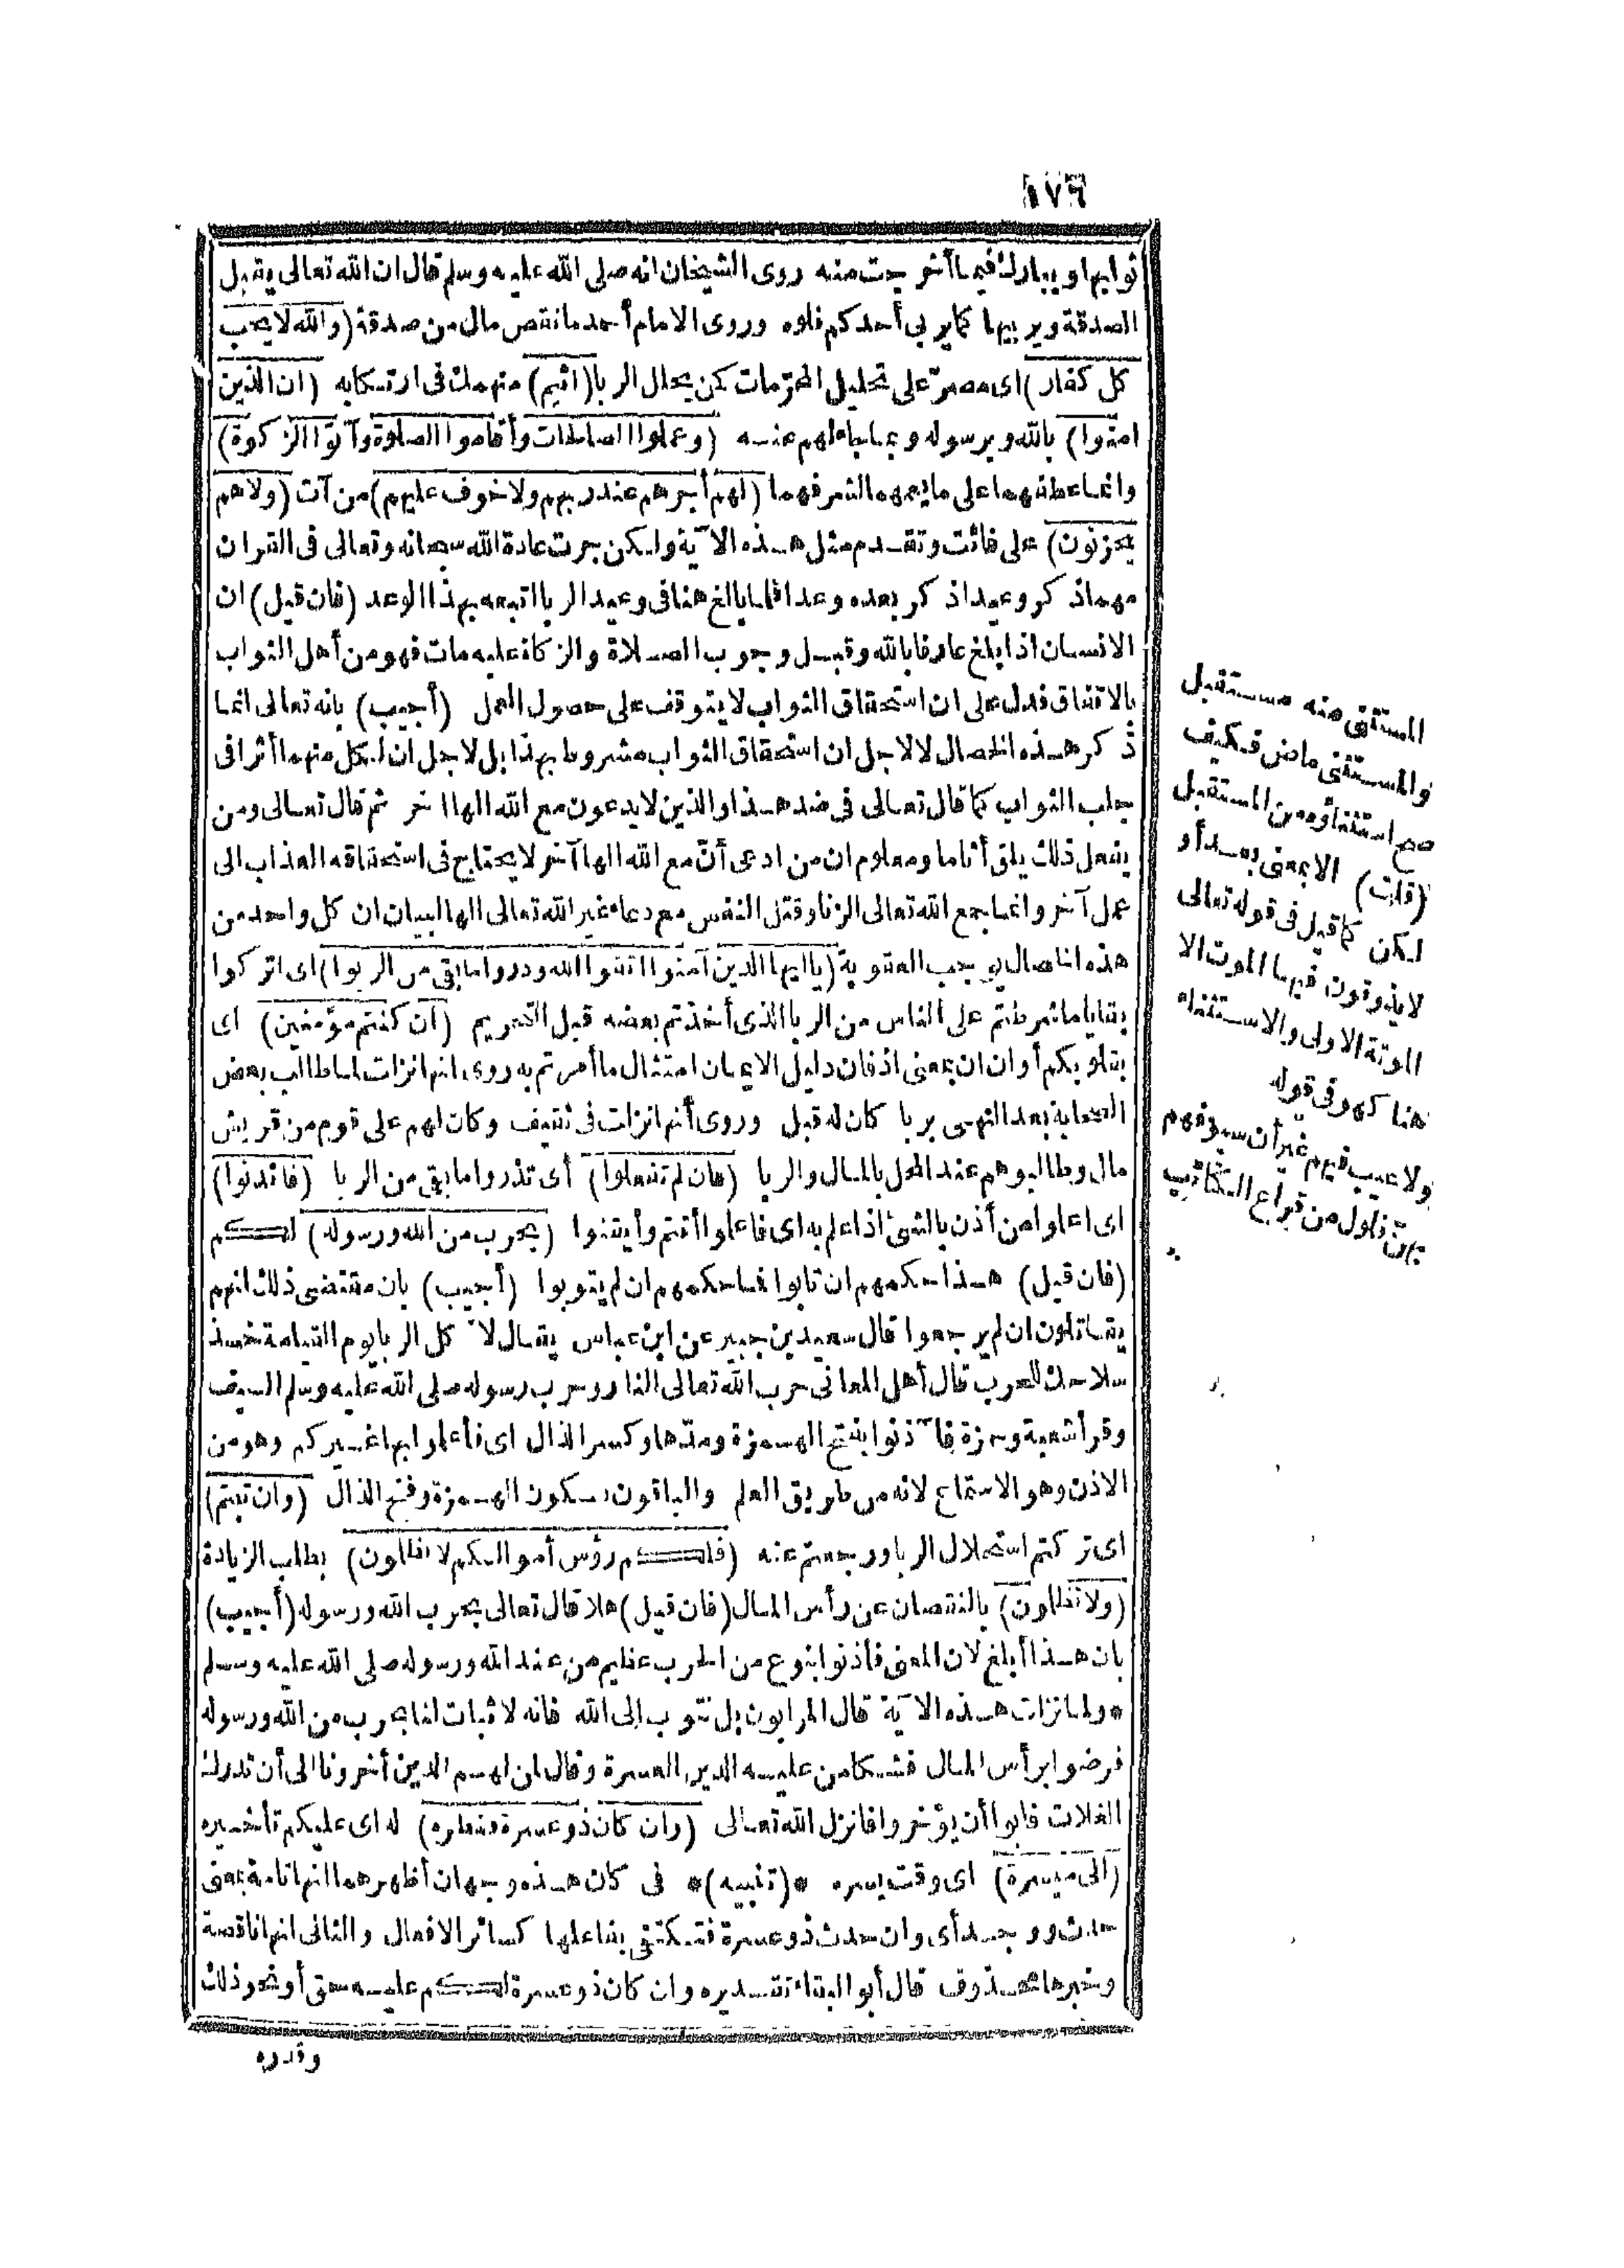 ١٧٦
ثوابها ويبارك فيما أخرجت منه روى الشيخان انه صلى الله عليه وسلم قال ان الله تعالى يقبل
الصدقة ويربيها كما يربى أحدكم فلوه وروى الامام أحمد ما نقص مال من صدقة (والله لا يحب
كل كفار) اى مصر على تحليل المحرّمات كمن يحلل الربا (اثيم) منهمك فى ارتكابه (ان الذين
امنوا) بالله وبرسوله وبما جاءهم عنه (وعملوا الصالحات وأقاموا الصلوة وآتوا الزكوة)
وانما عطفهما على ما يعمهما لشرفهما (لهم أجرهم عند ربهم ولا خوف عليهم) من آت (ولا هم
يحزنون) على فائت وتقدم مثل هذه الآية ولكن جرت عادة الله سبحانه وتعالى فى القران
مهما ذكر وعيدا ذكر بعده وعدا فلما بالغ هنا فى وعيد الربا اتبعه بهذا الوعد (فان قيل) ان
الانسان اذا بلغ عارفا بالله وقبل وجوب الصلاة والزكاة عليه مات فهو من أهل الثواب
بالاتفاق فدل على ان استحقاق الثواب لا يتوقف على حصول العمل (أجيب) بانه تعالى انما
ذكر هذه الخصال لا لاجل ان استحقاق الثواب مشروط بهذا بل لاجل ان لكل منهما أثرا فى
جلب الثواب كما قال تعالى فى ضد هذا والذين لا يدعون مع الله الها اخر ثم قال تعالى ومن
يفعل ذلك يلق أثاما ومعلوم ان من ادعى أنّ مع الله الها آخر لا يحتاج فى استحقاقه العذاب الى
عمل آخر وانما جمع الله تعالى الزنا وقتل النفس مع دعاء غير الله تعالى الها لبيان ان كل واحد من
هذه الخصال يوجب العقوبة (يا ايها الذين آمنوا اتقوا الله وذروا ما بقى من الربوا) اى اتركوا
بقايا ما شرطتم على الناس من الربا الذى أخذتم بعضه قبل التحريم (ان كنتم مؤمنين) اى
بقلوبكم أو ان ان بمعنى اذ فان دليل الايمان امتثال ما أمرتم به روى انها نزلت لما طالب بعض
الصحابة بعد النهى بربا كان له قبل وروى أنها نزلت فى ثقيف وكان لهم على قوم من قريش
مال وطالبوهم عند المحل بالمال والربا (فان لم تفعلوا) أى تذروا ما بقى من الربا (فائذنوا)
اى اعلموا من أذن بالشئ اذا علم به اى فاعلموا أنتم وأيقنوا (بحرب من الله ورسوله) لكم
(فان قيل) هذا حكمهم ان تابوا فما حكمهم ان لم يتوبوا (أجيب) بان مقتضى ذلك انهم
يقاتلون ان لم يرجعوا قال سعيد بن جبير عن ابن عباس يقال لآكل الربا يوم القيامة خذ
سلاحك للحرب قال أهل المعانى حرب الله تعالى النار وحرب رسوله صلى الله عليه وسلم السيف
وقرأ شعبة وحمزة فآذنوا بفتح الهمزة ومدّها وكسر الذال اى فأعلموا بها غيركم وهو من
الاذن وهو الاستماع لانه من طريق العلم والباقون بسكون الهمزة وفتح الذال (وان تبتم)
اى تركتم استحلال الربا ورجعتم عنه (فلكم رؤس أموالكم لا تظلمون) بطلب الزيادة
(ولا تظلمون) بالنقصان عن رأس المال (فان قيل) هلا قال تعالى بحرب الله ورسوله (أجيب)
بان هذا أبلغ لان المعنى فأذنوا بنوع من الحرب عظيم من عند الله ورسوله صلى الله عليه وسلم
* ولما نزلت هذه الآية قال المرابون بل نتوب الى الله فانه لا ثبات لنا بحرب من الله ورسوله
فرضوا برأس المال فشكا من عليه الدين العسرة وقال لمن لهم الدين أخرونا الى أن تدرك
الغلات فابوا أن يؤخروا فانزل الله تعالى (وان كان ذو عسرة فنظرة) له اى عليكم تأخيره
(الى ميسرة) اى وقت يسره * (تنبيه) * فى كان هذه وجهان أظهرهما انها تامة بمعنى
حدث ووجد أى وان حدث ذو عسرة فتكتفى بفاعلها كسائر الافعال والثانى انها ناقصة
وخبرها محذوف قال أبو البقاء تقديره وان كان ذو عسرة لكم عليه حق أو نحو ذلك
وقدره
المستثنى منه مستقبل
والمستثنى ماض فكيف
صح استثناؤه من المستقبل
(قلت) الا بمعنى بعد أو
لكن كما قيل فى قوله تعالى
لا يذوقون فيها الموت الا
الموتة الاولى والاستثناء
هنا كهو فى قوله
ولا عيب فيهم غير أن سيوفهم
بهنّ فلول من قراع الكتائب